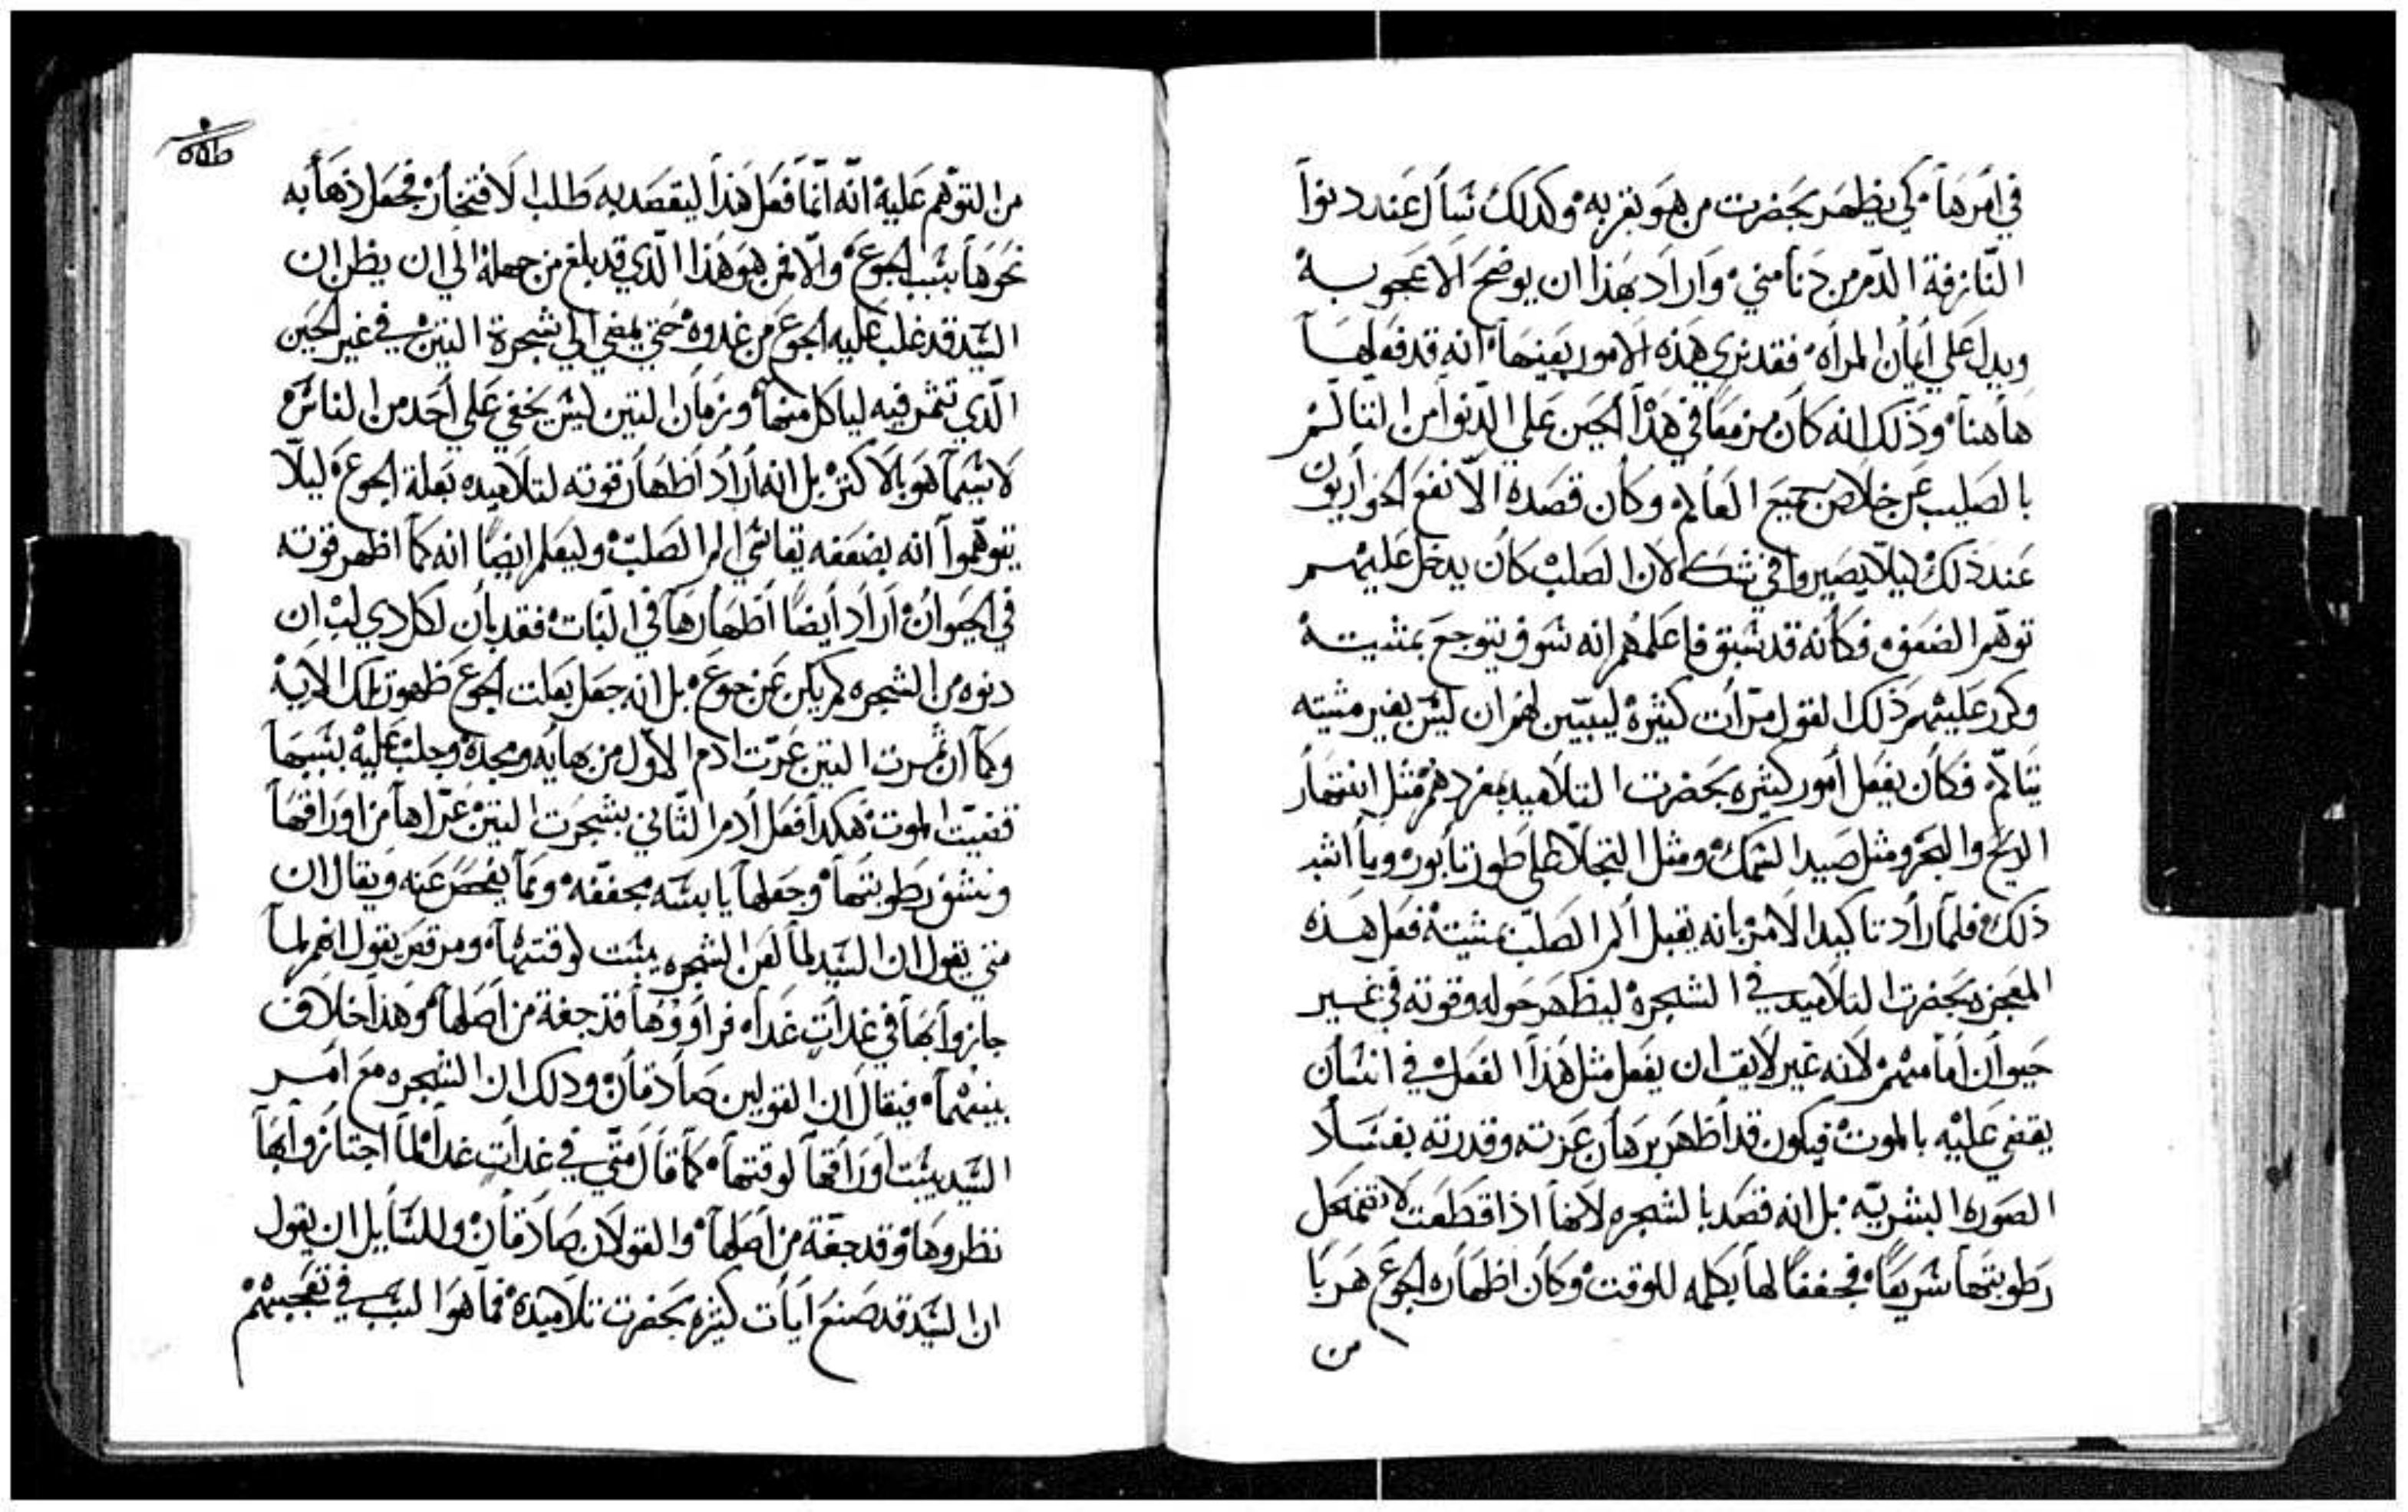 في امرها كي يظهر بحضرت من هو بقربه وكدلك سال عند دنوا
النازفة الدم من دنا مني واراد بهذا ان يوضح الاعجوبه
ويدل علي أيمان المرأه فقد نري هذه الامور بعينها انه قد فعلها
هاهنا وذلك انه كان مزمعا في هذا الحين علي الدنوا من التالم
بالصليب عن خلاص جميع العالم وكان قصده الا نفع الحواريون
عند ذلك ليلا يصيروا في شك لان الصلب كان يدخل عليهم
توهم الضعف فكانه قد سبق فاعلمهم انه سوف يتوجع بمشيته
وكرر عليهم ذلك القول مرأت كثيرة ليبين لهم ان ليس بغير مشيته
يتالم فكان يفعل أمور كثيره بحضرت التلاميد بمفردهم مثل انتهار
الريح والبحر ومثل صيد السمك ومثل التجلا علي طور تابور وبأاشد
ذلك فلما راد تاكيد الامر بانه يقبل ألم الصلب بمشيته فعل هذه
المعجزه بحضرت التلاميد في الشجرة ليظهر حوله وقوته في غير
حيوان امامهم لانه غير لايق ان يفعل مثل هذا الفعل في انسان
يقضي عليه بالموت فيكون قد اظهر برهان عزته وقدرته بفساد
الصوره البشريه بل انه قصد بالشجره لانها اذا قطعت لا تضمحل
رطوبتها سريعا فجففا لها بكلمه للوقت وكان اظهاره الجوع هربا
من
من التوهم عليه انه انما فعل هذا ليقصد به طلب الافتخار فجعل ذهابه
نحوها بسبب الجوع والا فمن هو هذا الذي قد بلغ من جهله الي ان يظن ان
السيد قد غلب عليه الجوع من غدوه حتي يمضي الي شجرة التين في غير الحين
الذي تثمر فيه لياكل منها وزمان التين ليس يخفي علي أحد من الناس
لا سيما هو بالاكثر بل انه أراد اظهار قوته لتلاميده بعلة الجوع ليلا
يتوهموا انه بضعفه يقاسي الم الصلب وليعلم ايضا انه كما اظهر قوته
في الحيوان اراد أيضا أظهارها في النبات فقد بان لكل دي لب ان
دنوه من الشجره لم يكن عن جوع بل انه جعل بعلت الجوع ظهور تلك الاية
وكما ان ثمرت التين عرت ادم الاول من بهايه ومجده وجلب عليه بسببها
قضيت الموت هكدا فعل أدم الثاني بشجرت التين عراها من اوراقها
ونشف رطوبتها وجعلها يابسه مجففه ومما يفحص عنه ويقال ان
متي يقول ان السيد لما لعن الشجره يبست لوقتها ومرقص يقول انهم لما
جازوا بها في غدات غداه فراووها قد جفة من أصلها وهذا خلاف
بينهما فيقال ان القولين صادقان ودلك ان الشجره مع امر
السيد يبست اوراقها لوقتها كما قال متي في غدات غد لما اجتازوا بها
نظروها وقد جفة من أصلها والقولان صادقان وللسايل ان يقول
ان السيد قد صنع أيات كثيره بحضرت تلاميدة فما هو السبب في تعجبهم